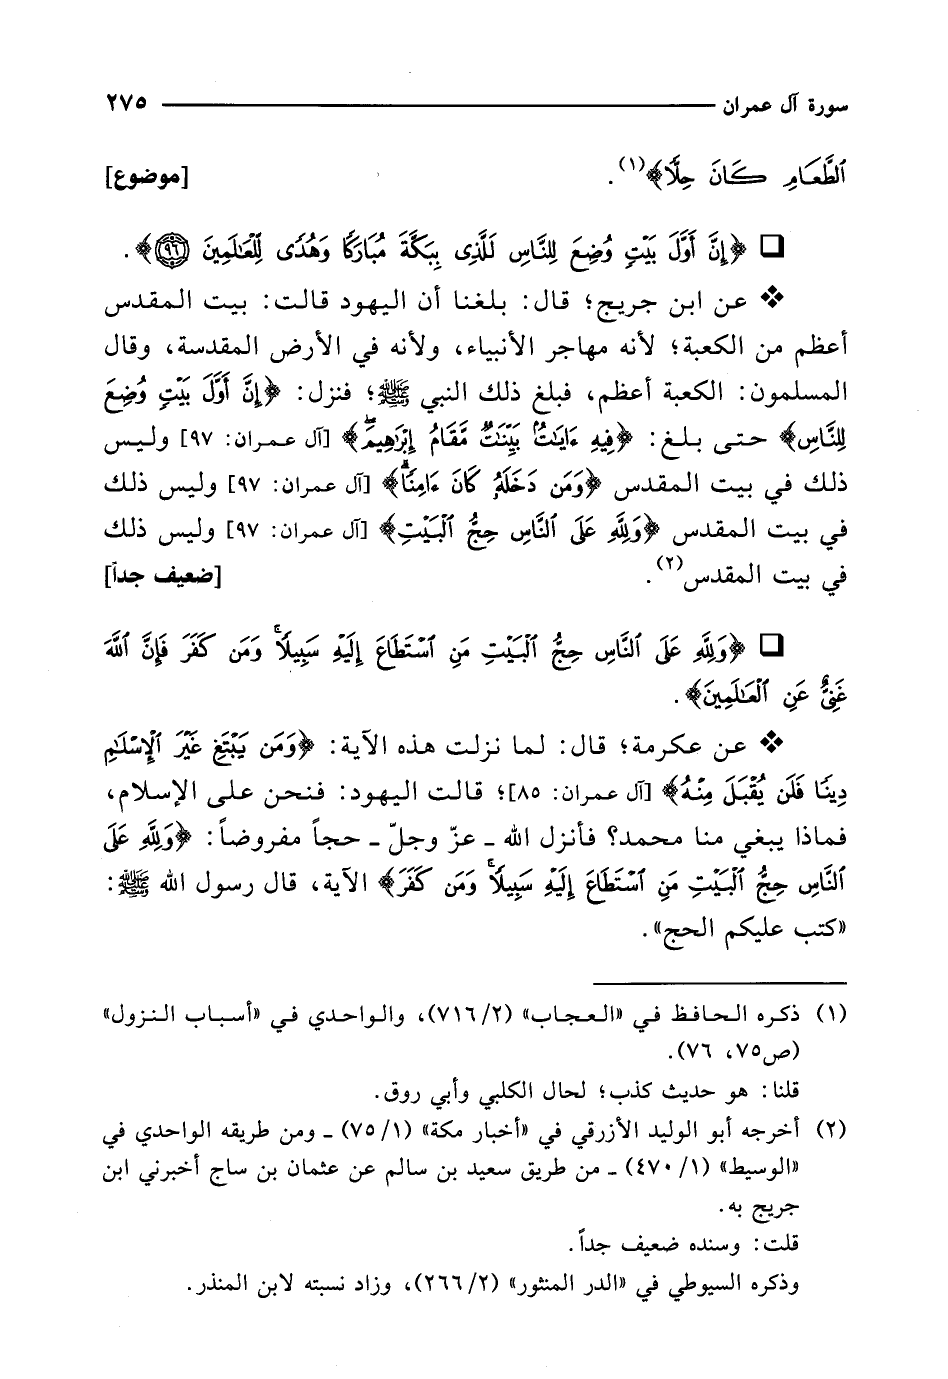 سورة آل عمران ٢٧٥
ٱلطَّعَامِ كَانَ حِلًّا﴾(١). [موضوع]
❑ ﴿إِنَّ أَوَّلَ بَيْتٍ وُضِعَ لِلنَّاسِ لَلَّذِى بِبَكَّةَ مُبَارَكًا وَهُدًى لِّلْعَٰلَمِينَ ٩٦﴾.
❖ عن ابن جريج؛ قال: بلغنا أن اليهود قالت: بيت المقدس
أعظم من الكعبة؛ لأنه مهاجر الأنبياء، ولأنه في الأرض المقدسة، وقال
المسلمون: الكعبة أعظم، فبلغ ذلك النبي ﷺ؛ فنزل: ﴿إِنَّ أَوَّلَ بَيْتٍ وُضِعَ
لِلنَّاسِ﴾ حتى بلغ: ﴿فِيهِ ءَايَٰتٌۢ بَيِّنَٰتٌ مَّقَامُ إِبْرَٰهِيمَۖ﴾ [آل عمران: ٩٧] وليس
ذلك في بيت المقدس ﴿وَمَن دَخَلَهُۥ كَانَ ءَامِنًاۗ﴾ [آل عمران: ٩٧] وليس ذلك
في بيت المقدس ﴿وَلِلَّهِ عَلَى ٱلنَّاسِ حِجُّ ٱلْبَيْتِ﴾ [آل عمران: ٩٧] وليس ذلك
في بيت المقدس(٢). [ضعيف جداً]
❑ ﴿وَلِلَّهِ عَلَى ٱلنَّاسِ حِجُّ ٱلْبَيْتِ مَنِ ٱسْتَطَاعَ إِلَيْهِ سَبِيلًاۚ وَمَن كَفَرَ فَإِنَّ ٱللَّهَ
غَنِىٌّ عَنِ ٱلْعَٰلَمِينَ﴾.
❖ عن عكرمة؛ قال: لما نزلت هذه الآية: ﴿وَمَن يَبْتَغِ غَيْرَ ٱلْإِسْلَٰمِ
دِينًا فَلَن يُقْبَلَ مِنْهُ﴾ [آل عمران: ٨٥]؛ قالت اليهود: فنحن على الإسلام،
فماذا يبغي منا محمد؟ فأنزل الله ـ عزّ وجلّ ـ حجاً مفروضاً: ﴿وَلِلَّهِ عَلَى
ٱلنَّاسِ حِجُّ ٱلْبَيْتِ مَنِ ٱسْتَطَاعَ إِلَيْهِ سَبِيلًاۚ وَمَن كَفَرَ﴾ الآية، قال رسول الله ﷺ:
«كتب عليكم الحج».
(١) ذكره الحافظ في «العجاب» (٧١٦/٢)، والواحدي في «أسباب النزول»
(ص٧٥، ٧٦).
قلنا: هو حديث كذب؛ لحال الكلبي وأبي روق.
(٢) أخرجه أبو الوليد الأزرقي في «أخبار مكة» (٧٥/١) ـ ومن طريقه الواحدي في
«الوسيط» (٤٧٠/١) ـ من طريق سعيد بن سالم عن عثمان بن ساج أخبرني ابن
جريج به.
قلت: وسنده ضعيف جداً.
وذكره السيوطي في «الدر المنثور» (٢٦٦/٢)، وزاد نسبته لابن المنذر.